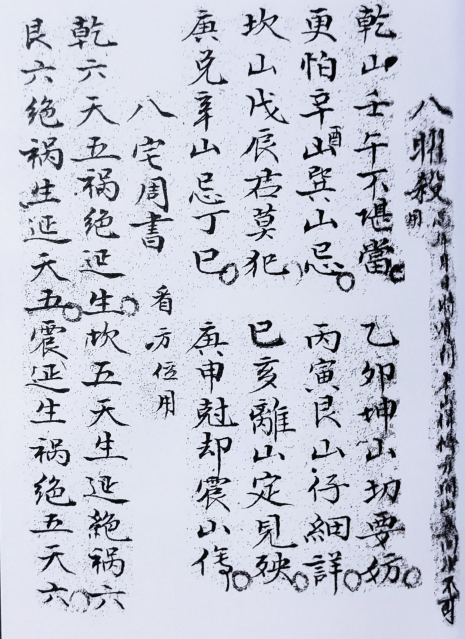 八曜殺 用
乾山壬午不堪當 乙卯坤山切要妨
更怕辛山酉巽山忌 丙寅艮山仔細詳
坎山戊辰君莫犯 巳亥離山定見殃
庚兑辛山忌丁巳 庚申尅却震山傷
八宅周書 看方位用
乾六天五祸絶延生坎五天生延絶祸六
艮六絶祸生延天五震延生祸絶五天六